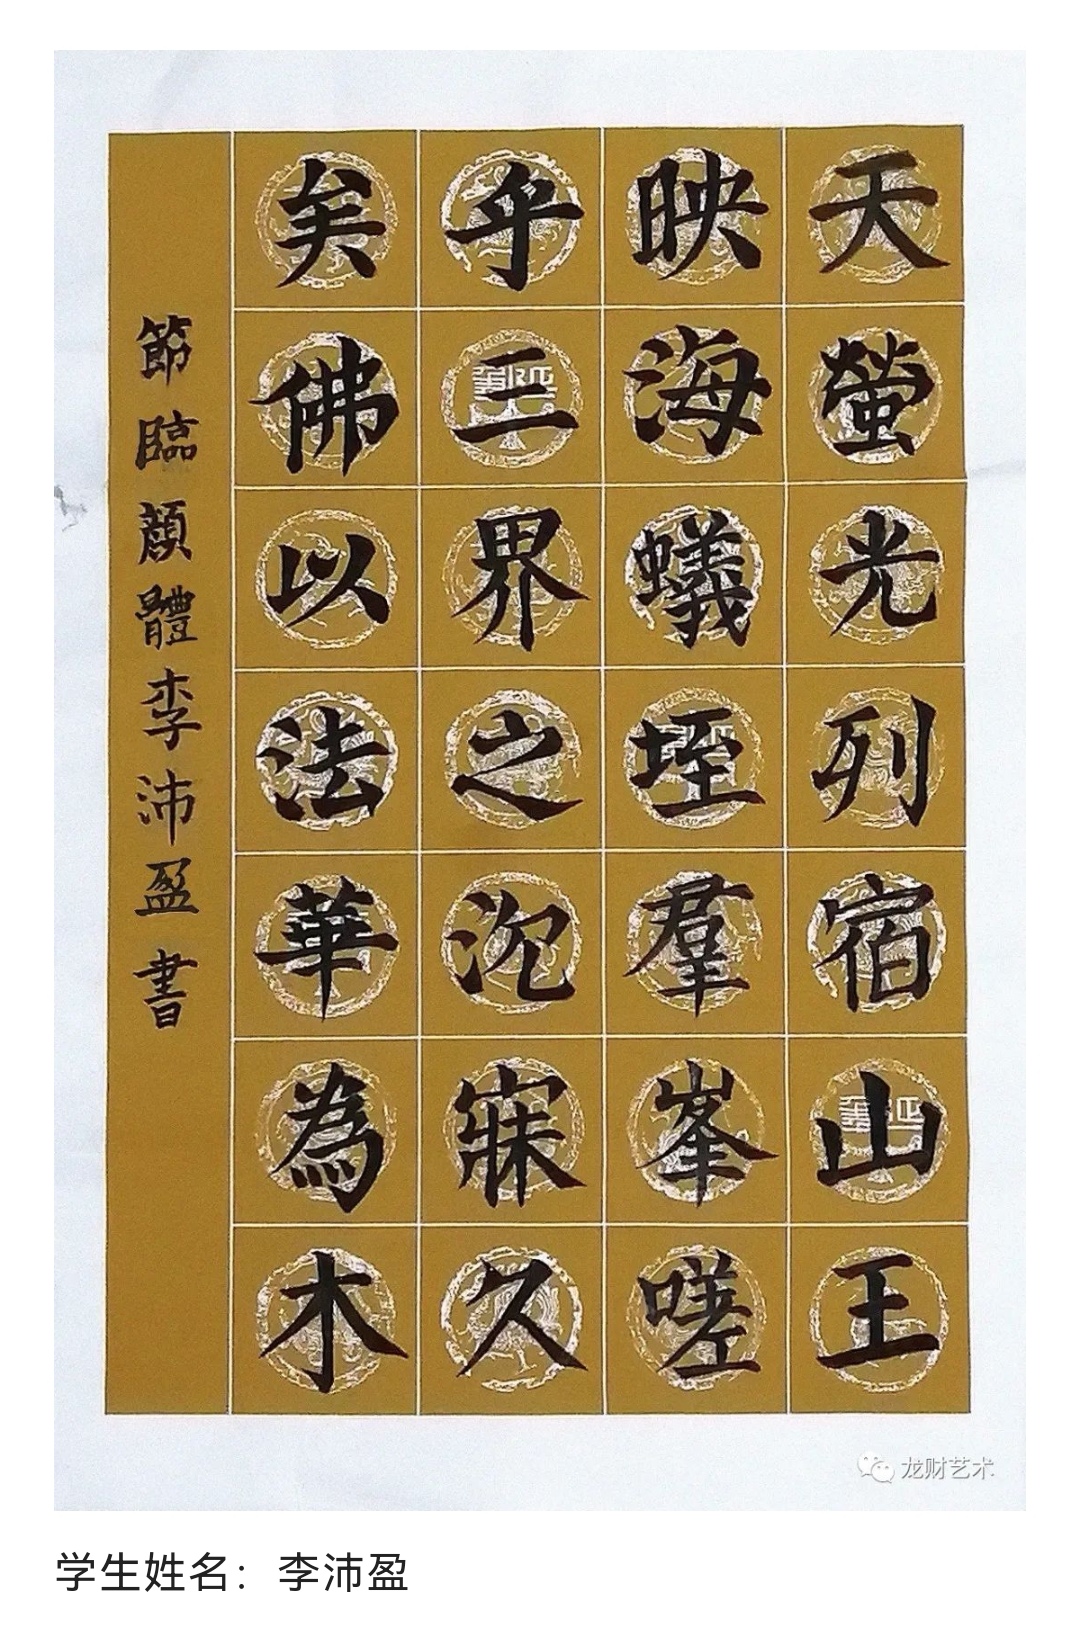 天螢光列宿山王
映海蟻垤羣峯嗟
乎三界之沉寐久
矣佛以法華為木
節臨顔體李沛盈書
龙财艺术
学生姓名：李沛盈